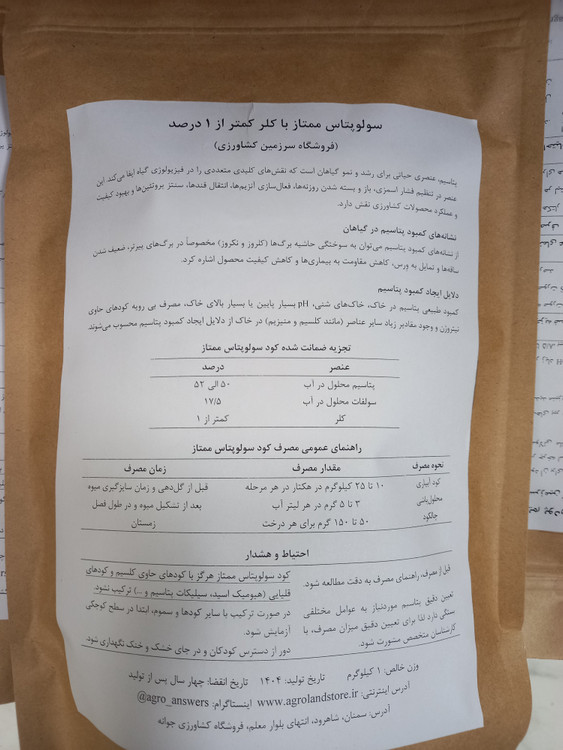 سولوپتاس ممتاز با کلر کمتر از ۱ درصد
(فروشگاه سرزمین کشاورزی)
پتاسیم، عنصری حیاتی برای رشد و نمو گیاهان است که نقش‌های کلیدی متعددی را در فیزیولوژی گیاه ایفا می‌کند. این
عنصر در تنظیم فشار اسمزی، باز و بسته شدن روزنه‌ها، فعال‌سازی آنزیم‌ها، انتقال قندها، سنتز پروتئین‌ها و بهبود کیفیت
و عملکرد محصولات کشاورزی نقش دارد.
نشانه‌های کمبود پتاسیم در گیاهان
از نشانه‌های کمبود پتاسیم می‌توان به سوختگی حاشیه برگ‌ها (کلروز و نکروز) مخصوصاً در برگ‌های پیرتر، ضعیف شدن
ساقه‌ها و تمایل به ورس، کاهش مقاومت به بیماری‌ها و کاهش کیفیت محصول اشاره کرد.
دلایل ایجاد کمبود پتاسیم
کمبود طبیعی پتاسیم در خاک، خاک‌های شنی، pH بسیار پایین یا بسیار بالای خاک، مصرف بی رویه کودهای حاوی
نیتروژن و وجود مقادیر زیاد سایر عناصر (مانند کلسیم و منیزیم) در خاک از دلایل ایجاد کمبود پتاسیم محسوب می‌شوند.
تجزیه ضمانت شده کود سولوپتاس ممتاز
عنصر درصد
پتاسیم محلول در آب ۵۰ الی ۵۲
سولفات محلول در آب ۱۷/۵
کلر کمتر از ۱
راهنمای عمومی مصرف کود سولوپتاس ممتاز
نحوه مصرف مقدار مصرف زمان مصرف
کود آبیاری ۱۰ تا ۲۵ کیلوگرم در هکتار در هر مرحله قبل از گل‌دهی و زمان سایزگیری میوه
محلول‌پاشی ۳ تا ۵ گرم در هر لیتر آب بعد از تشکیل میوه و در طول فصل
چالکود ۵۰ تا ۱۵۰ گرم برای هر درخت زمستان
احتیاط و هشدار
قبل از مصرف، راهنمای مصرف به دقت مطالعه شود.
تعیین دقیق پتاسیم موردنیاز به عوامل مختلفی
بستگی دارد لذا برای تعیین دقیق میزان مصرف، با
کارشناسان متخصص مشورت شود.
کود سولوپتاس ممتاز هرگز با کودهای حاوی کلسیم و کودهای
قلیایی (هیومیک اسید، سیلیکات پتاسیم و ...) ترکیب نشود.
در صورت ترکیب با سایر کودها و سموم، ابتدا در سطح کوچکی
آزمایش شود.
دور از دسترس کودکان و در جای خشک و خنک نگهداری شود.
وزن خالص: ۱ کیلوگرم تاریخ تولید: ۱۴۰۴ تاریخ انقضا: چهار سال پس از تولید
آدرس اینترنتی: www.agrolandstore.ir اینستاگرام: @agro_answers
آدرس: سمنان، شاهرود، انتهای بلوار معلم، فروشگاه کشاورزی جوانه